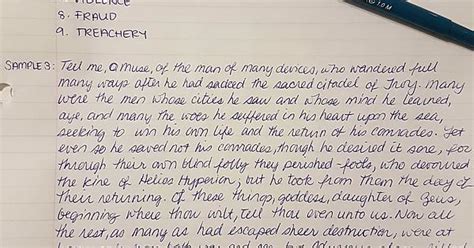 8. FRAUD
9. TREACHERY
SAMPLE 3: Tell me, O Muse, of the man of many devices, who wandered full
many ways after he had sacked the sacred citadel of Troy. Many
were the men whose cities he saw and whose mind he learned,
aye, and many the woes he suffered in his heart upon the sea,
seeking to win his own life and the return of his comrades. Yet
even so he saved not his comrades, though he desired it sore, for
through their own blind folly they perished - fools, who devoured
the kine of Helios Hyperion; but he took from them the day of
their returning. Of these things, goddess, daughter of Zeus,
beginning where thou wilt, tell thou even unto us. Now all
the rest, as many as had escaped sheer destruction, were at